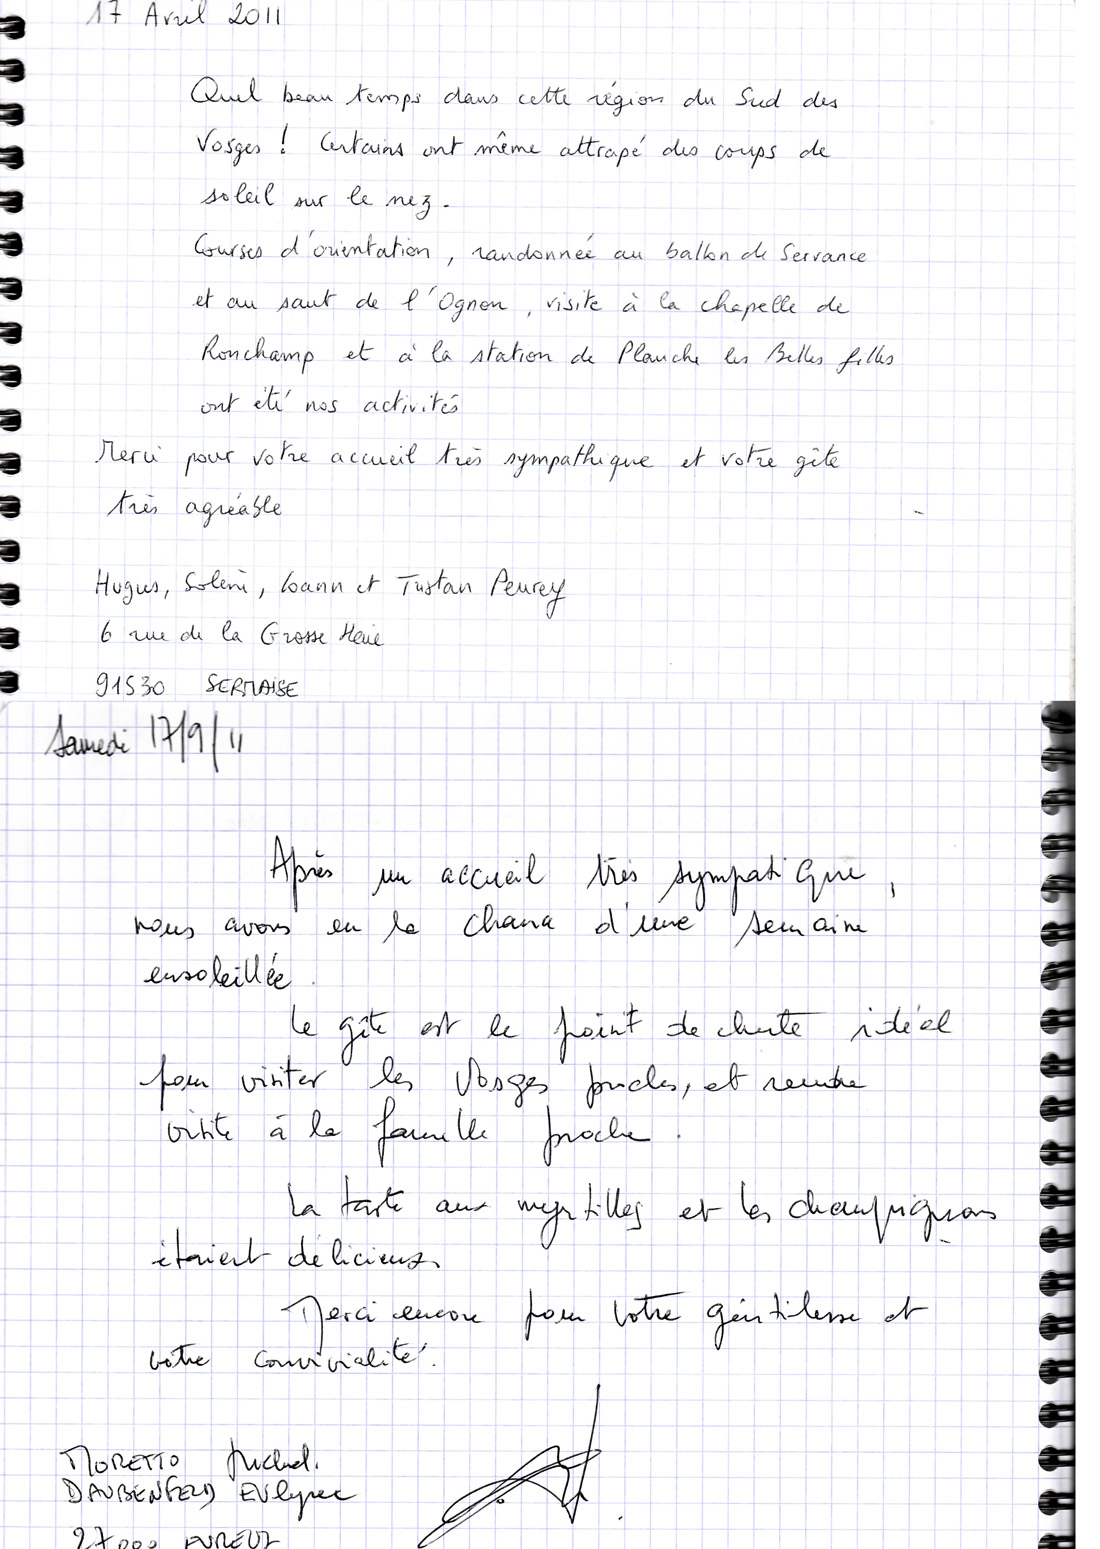 17 Avril 2011
Quel beau temps dans cette région du Sud des
Vosges ! Certains ont même attrapé des coups de
soleil sur le nez.
Courses d'orientation, randonnée au ballon de Servance
et au saut de l'Ognon, visite à la chapelle de
Ronchamp et à la station de Planche les Belles filles
ont été nos activités
Merci pour votre accueil très sympathique et votre gîte
très agréable
Hugues, Solène, Loann et Tristan Peurey
6 rue de la Grosse Haie
91530 SERMAISE
Samedi 17/9/11
Après un accueil très sympatique,
nous avons eu la chance d'une semaine
ensoleillée.
Le gîte est le point de chute idéal
pour visiter les Vosges et rendre
visite à la famille proche.
La tarte aux myrtilles et les champignons
étaient délicieux.
Merci encore pour votre gentilesse et
votre convivialité.
MORETTO Michel.
DAUBENFELD Evelyne
27000 EVREUX